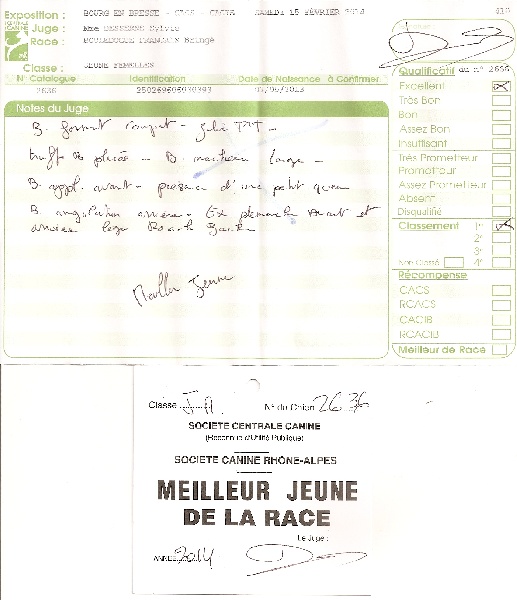 Exposition : BOURG EN BRESSE - CACS - CACIB SAMEDI 15 FÉVRIER 2014
Juge : Mme Sylvie
Race : BOULEDOGUE FRANCAIS Bringé
Classe : JEUNE FEMELLES
N° Catalogue Identification Date de Naissance à Confirmer
2636 250269606030393 /2013
Notes du Juge
B. format - jolie
truffe - B. large -
B. appl. avant - présence d'une petit queue
B. angulation arrière - Ex avant et
arrière
Meilleur Jeune
Qualificatif du n° 2636
Excellent
Très Bon
Bon
Assez Bon
Insuffisant
Très Prometteur
Prometteur
Assez Prometteur
Absent
Disqualifié
Classement 1er
2e
3e
Non Classé 4e
Récompense
CACS
RCACS
CACIB
RCACIB
Meilleur de Race
Classe J.A N° du Chien 2636
SOCIETE CENTRALE CANINE
(Reconnue d'Utilité Publique)
SOCIETE CANINE RHÔNE-ALPES
MEILLEUR JEUNE
DE LA RACE
Le Juge :
ANNÉE 2014